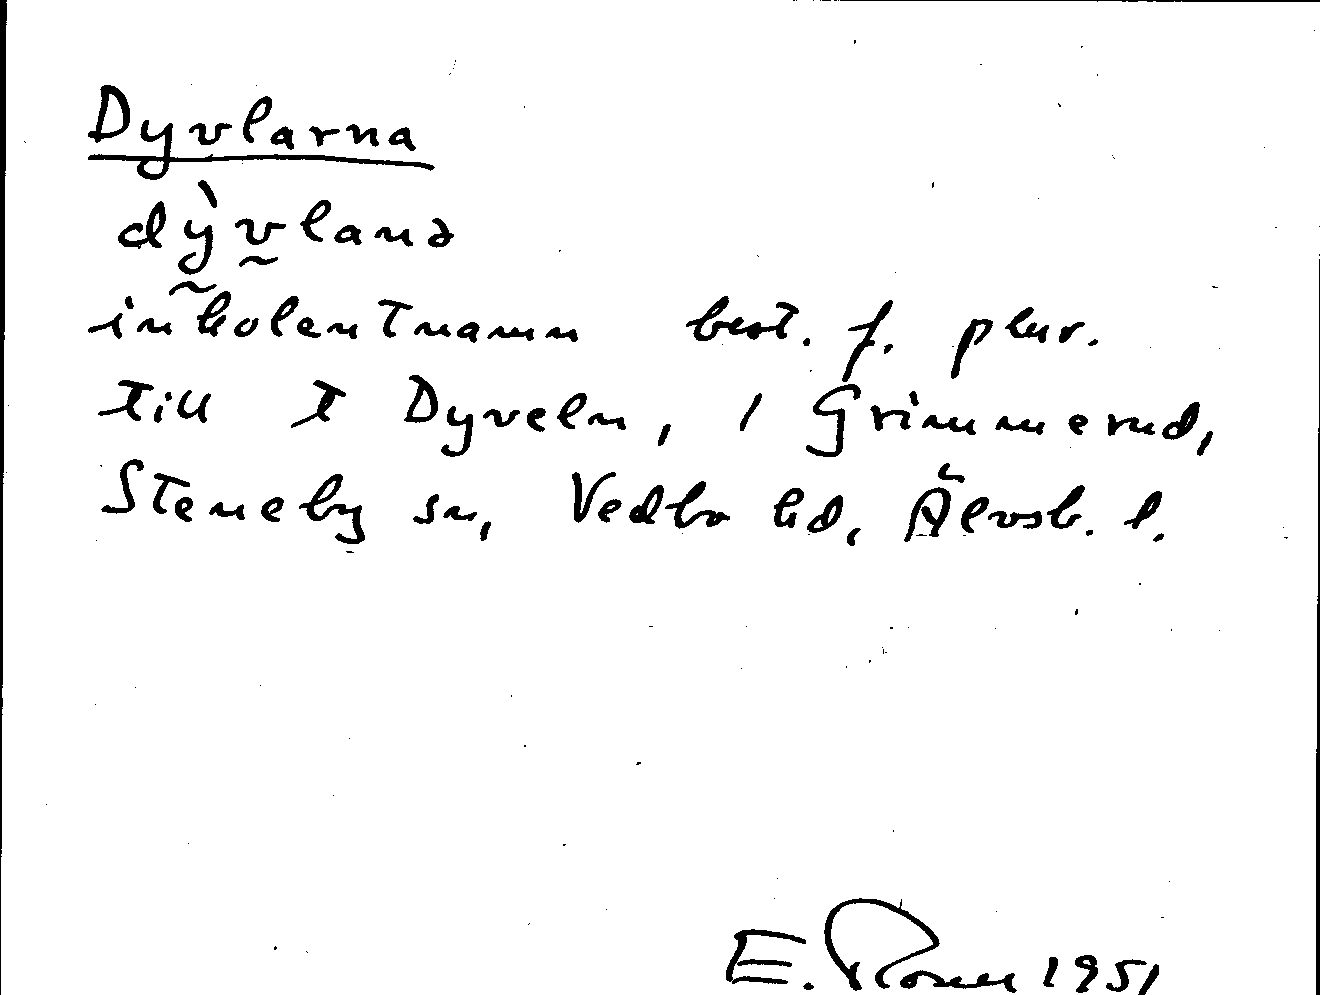 Dyvlarna
dỳvlanə
inkolentnamn best. f. plur.
till t Dyveln, / Grimmerud,
Steneby sn, Vedbo hd, Älvsb. l.
E. 1951